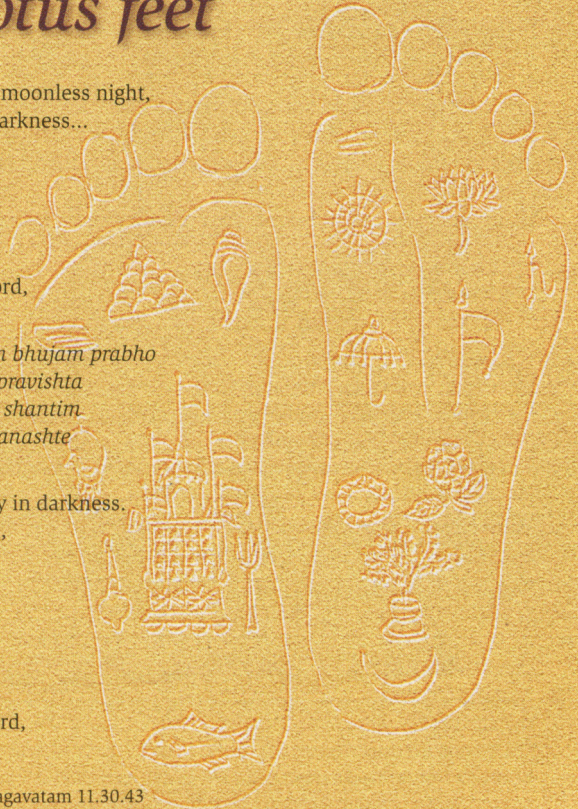 otus feet
moonless night,
arkness...
ord,
n bhujam prabho
pravishta
shantim
anashte
y in darkness.
,
rd,
agavatam 11.30.43